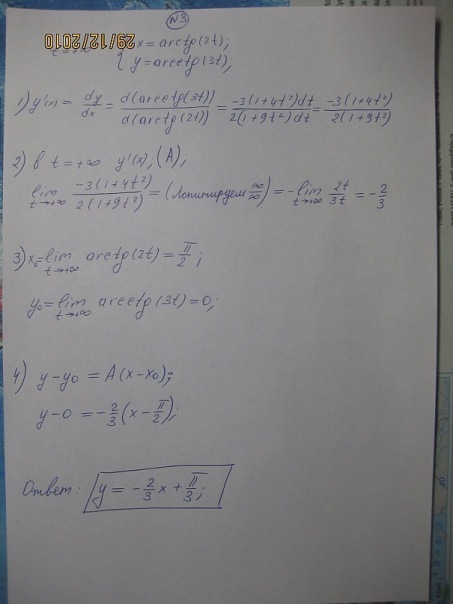 N3
t=+∞ { x = arctg(2t);
29/12/2010
y = arcctg(3t),
1) y'(x) = dy/dx = d(arcctg(3t))/d(arctg(2t)) = -3(1+4t²)dt/2(1+9t²)dt = -3(1+4t²)/2(1+9t²)
2) в t=+∞ y'(x), (A);
lim t→+∞ -3(1+4t²)/2(1+9t²) = (Лопитируем ∞/∞) = -lim t→+∞ 2t/3t = -2/3
3) x₀=lim t→+∞ arctg(2t) = π/2;
y₀=lim t→+∞ arcctg(3t)=0;
4) y-y₀ = A(x-x₀);
y-0 = -2/3(x-π/2);
Ответ: y = -2/3x + π/3;